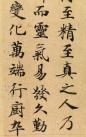 有至精至真之人乃
而靈氣易發久勤
變化萬端行厨卒